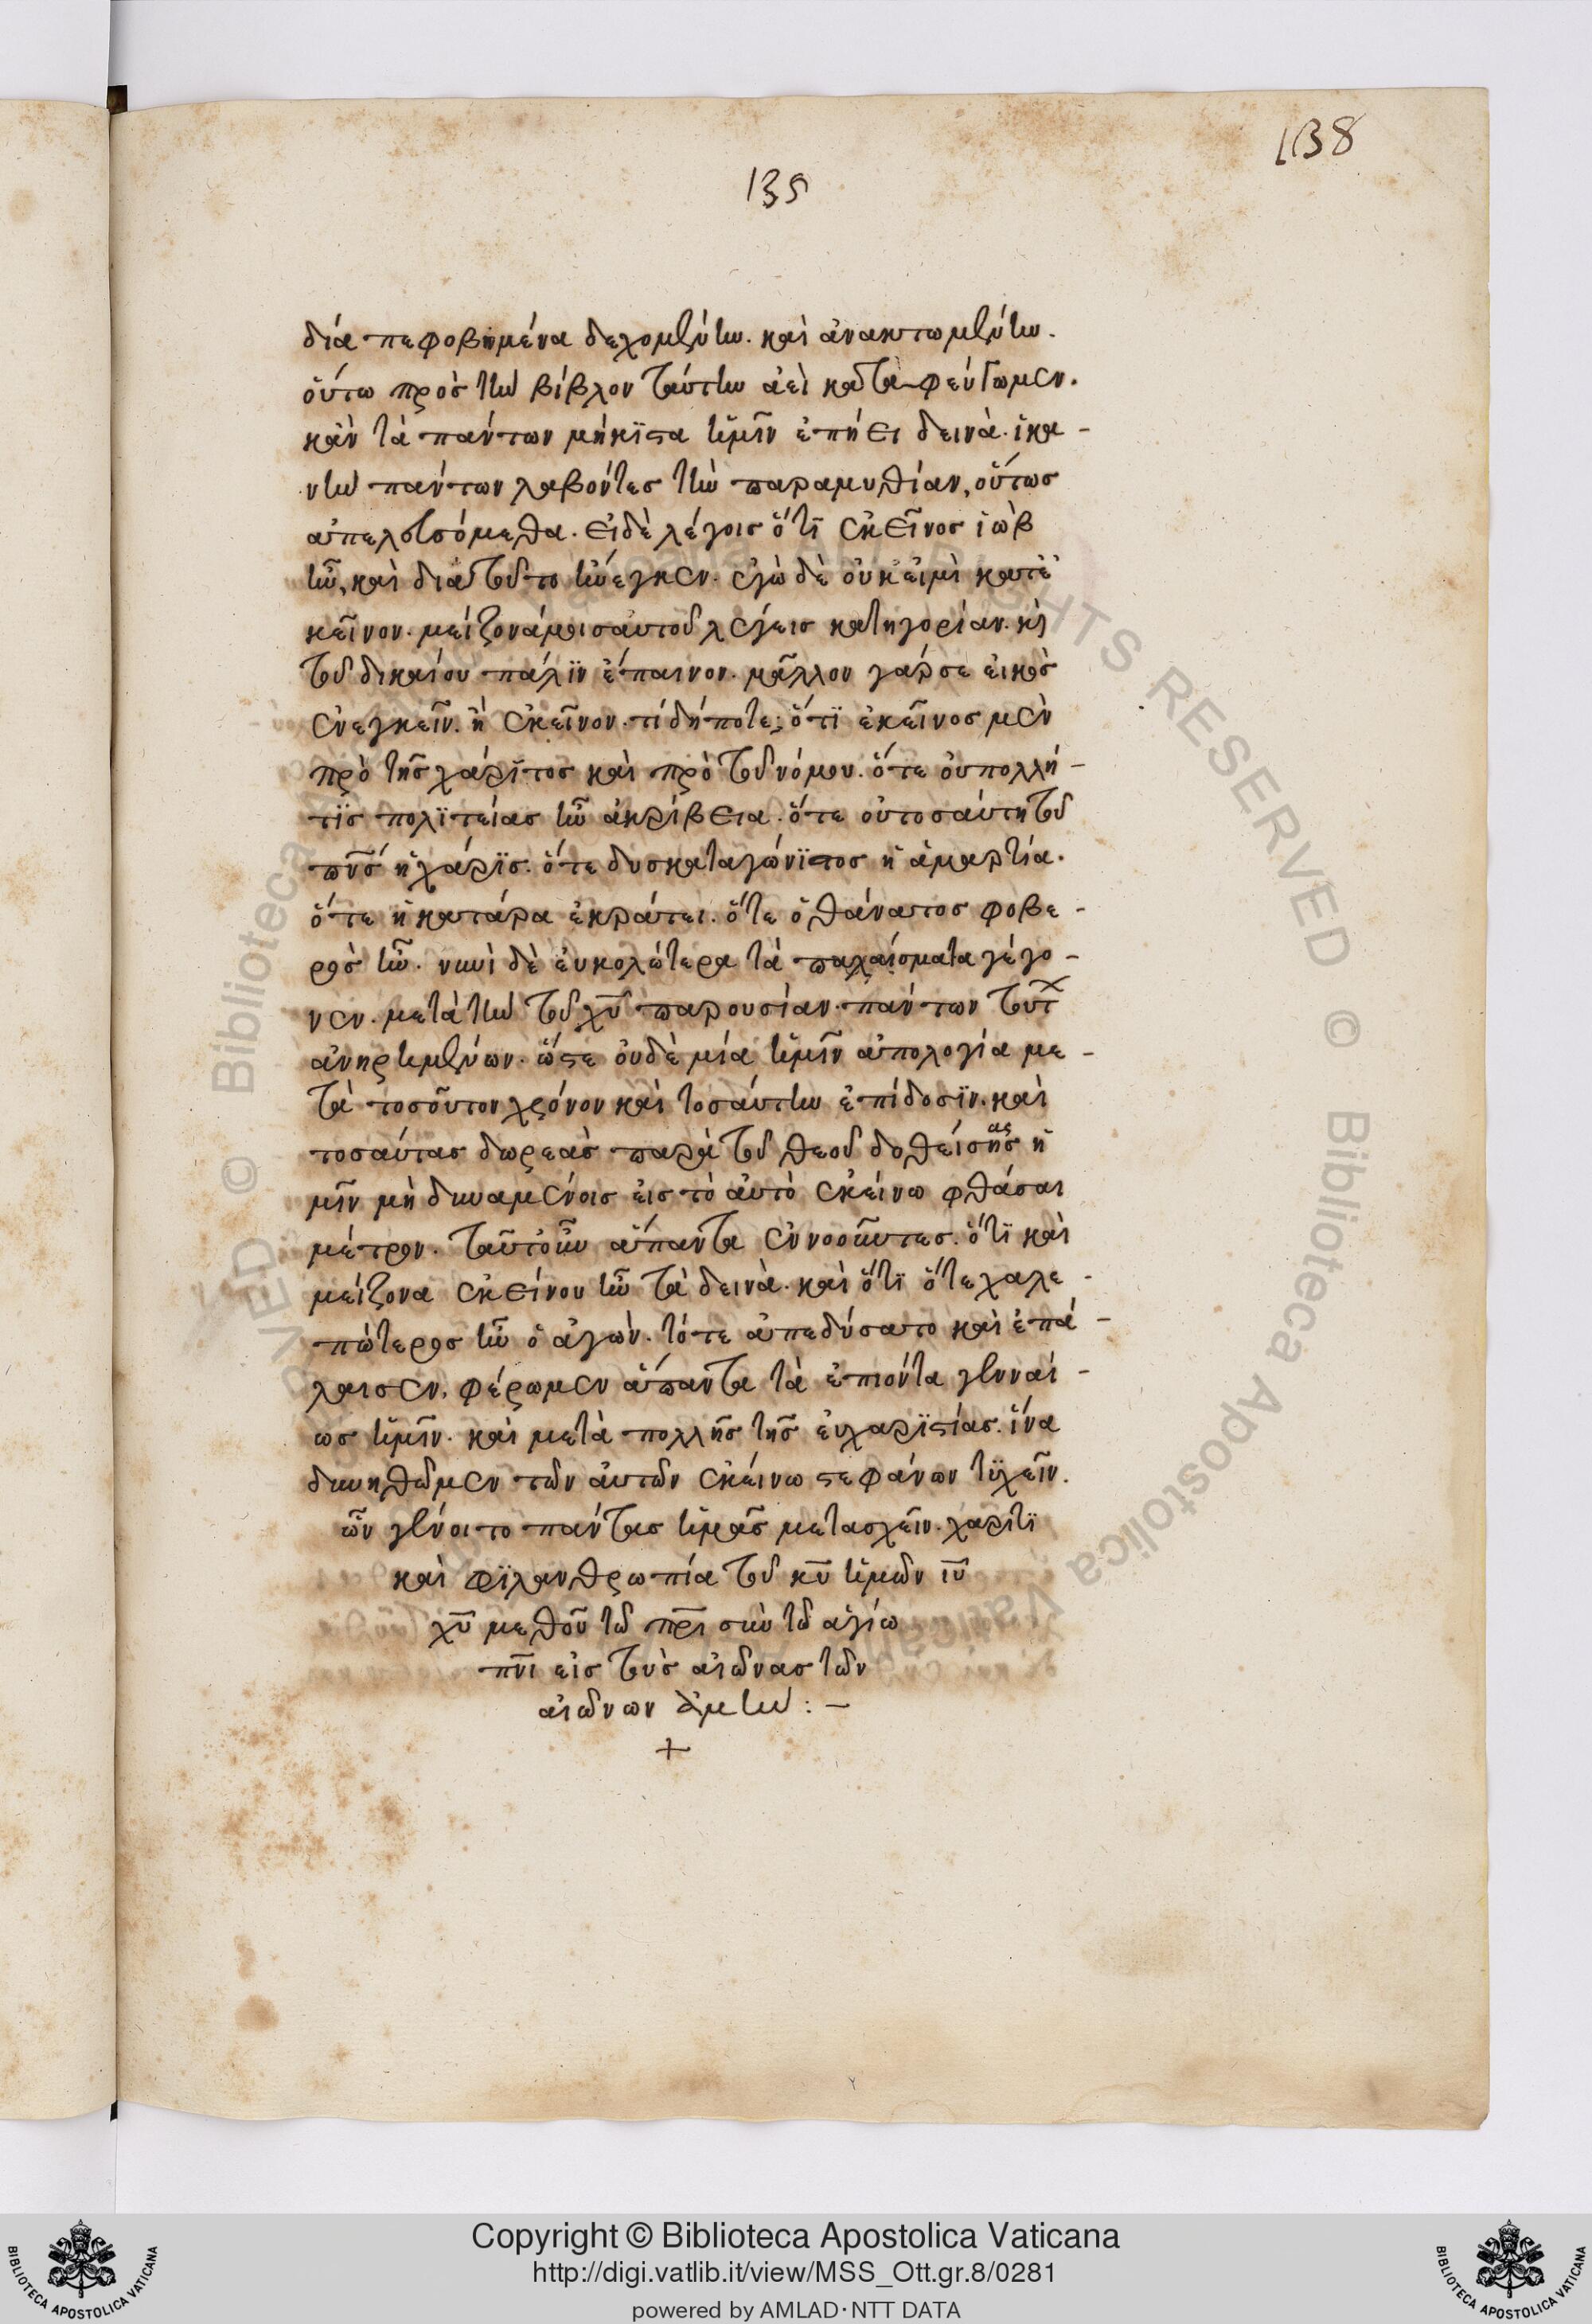 138
135
διά πεφοβημένα δεχομένην. καὶ ἀνακτωμένην.
οὕτω πρὸς τὴν βίβλον ταύτην ἀεὶ καταφεύγωμεν.
κἂν τὰ πάντων μήκϊστα ἡμῖν ἐπήει δεινὰ. ἱκα-
νὴν πάντων λαβόντες τὴν παραμυθίαν, οὕτως
ἀπελευσόμεθα. εἰ δὲ λέγοις ὅτι ἐκεῖνος ἰὼβ
ἦν, καὶ διατοῦτο ἤνεγκεν. ἐγὼ δὲ οὐκ εἰμὶ κατ' ἐ
κεῖνον. μείζονά μοι σαυτοῦ λέγεις κατηγορίαν. κὶ
τοῦ δικαίου πάλϊν ἔπαινον. μᾶλλον γάρ σε εἰκὸς
ἐνεγκεῖν. ἢ ἐκεῖνον. τί δήποτε; ὅτϊ ἐκεῖνος μὲν
πρὸ τῆς χάριτος καὶ πρὸ τοῦ νόμου. ὅτε οὐ πολλή-
τϊς πολϊτείας ἦν ἀκρίβεια. ὅτε οὐ τοσαύτη τοῦ
πνς ἡ χάρϊς. ὅτε δυσκαταγώνϊστος ἡ ἁμαρτία.
ὅτε ἡ κατάρα ἐκράτει. ὅτε ὁ θάνατος φοβε-
ρὸς ἦν. νυνὶ δὲ εὐκολώτερα τὰ παλαίσματα γέγο-
νεν. μετὰ τὴν τοῦ χυ παρουσίαν. πάντων τούτ
ἀνῃρημένων. ὥστε οὐδὲ μία ἡμῖν ἀπολογία με-
τὰ τοσοῦτον χρόνον καὶ τοσαύτην ἐπίδοσϊν. καὶ
τοσαύτας δωρεὰς παρὰ τοῦ θεοῦ δοθείσης ας ἡ
μῖν μὴ δυναμένοις εἰς τὸ αὐτὸ ἐκείνω φθάσαι
μέτρον. ταῦτ' οὖν ἅπαντα ἐννοοῦντες. ὅτϊ καὶ
μείζονα ἐκείνου ἦν τὰ δεινὰ. καὶ ὅτϊ ὅτε χαλε-
πώτερος ἦν ὁ ἀγὼν. τότε ἀπεδύσατο καὶ ἐπά-
λαισεν, φέρωμεν ἅπαντα τὰ ἐπιόντα γενναί-
ως ἡμῖν. καὶ μετὰ πολλῆς τῆς εὐχαρϊστίας. ἵνα
δυνηθῶμεν τῶν αὐτῶν ἐκείνω στεφάνων τϋχεῖν.
ὧν γένοιτο πάντας ἡμᾶς μετασχεῖν. χάριτϊ
καὶ φϊλανθρωπία τοῦ κυ ἡμῶν ιυ
χυ μεθοῦ τῶ πρι σὺν τῶ ἁγίω
πνι εἰς τοὺς αἰῶνας τῶν
αἰώνων ἀμὴν : –
+
Copyright © Biblioteca Apostolica Vaticana
http://digi.vatlib.it/view/MSS_Ott.gr.8/0281
powered by AMLAD·NTT DATA
BIBLIOTECA APOSTOLICA VATICANA
BIBLIOTECA APOSTOLICA VATICANA